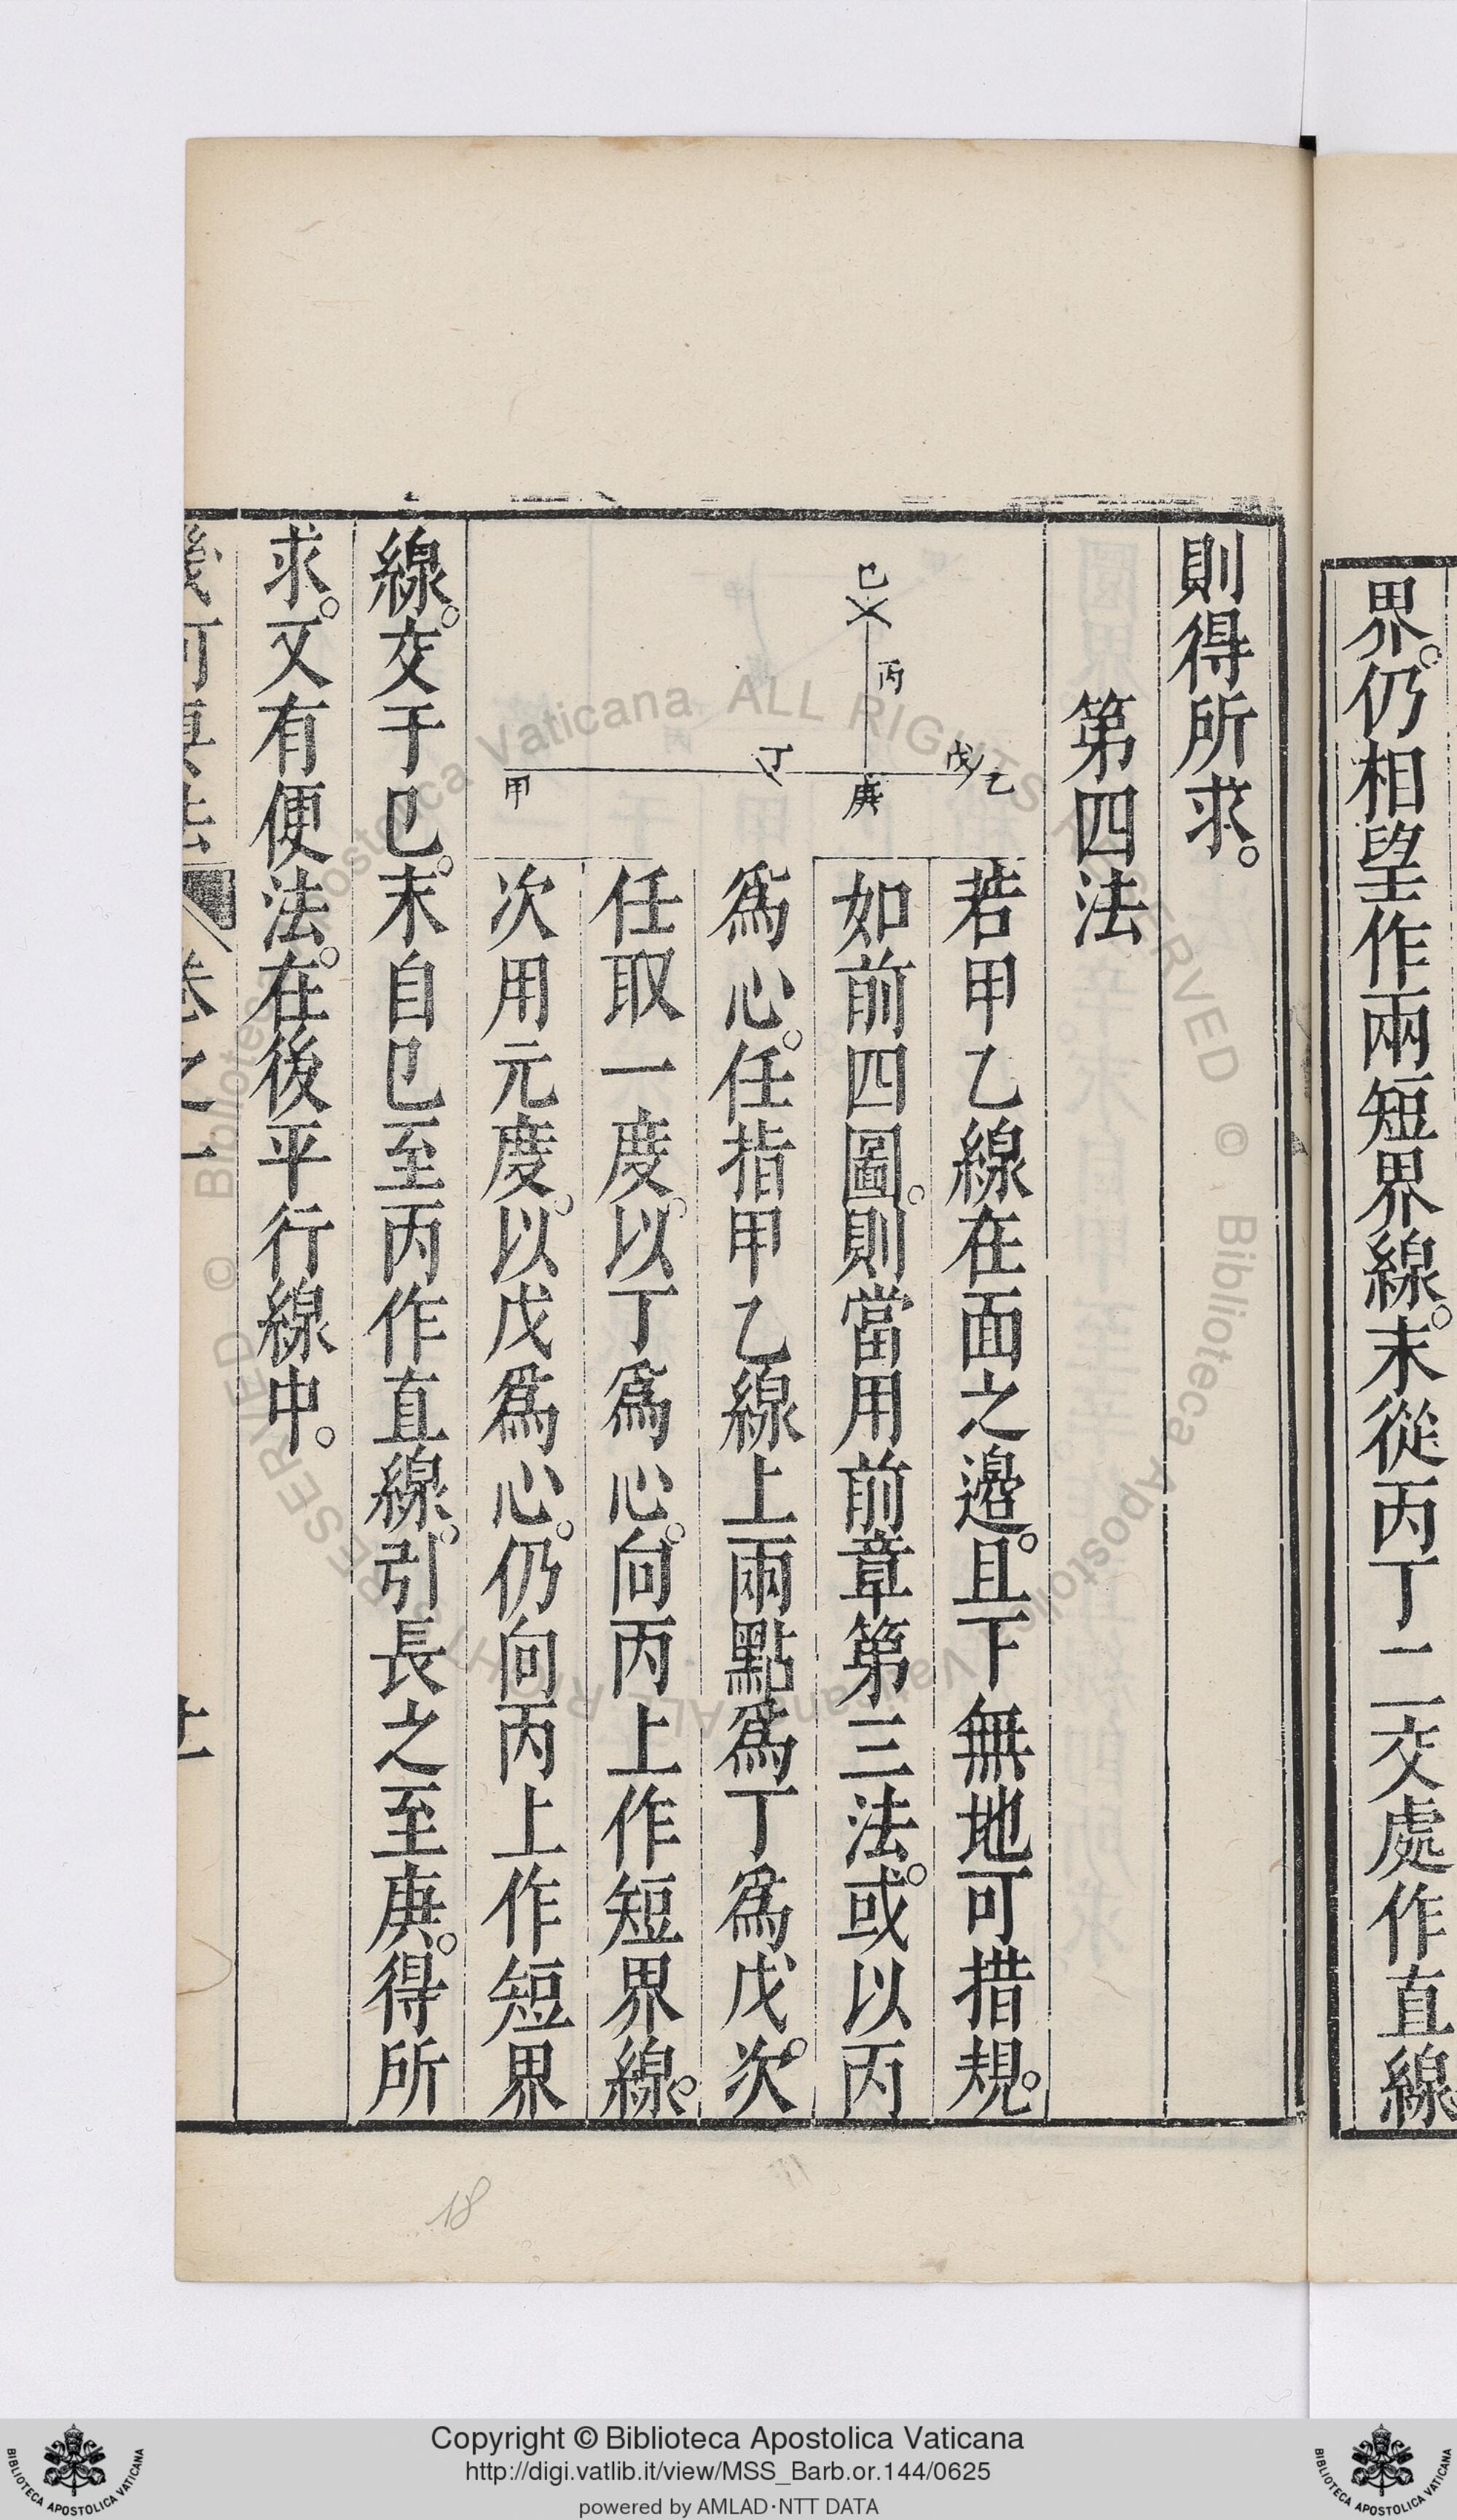 界。仍相望作兩短界線。末從丙丁二交處作直線
則得所求。
第四法
己
丙
戊
乙
丁
庚
甲
若甲乙線在面之邊。且下無地可措規。
如前四圖。則當用前章第三法。或以丙
爲心。任指甲乙線上兩點爲丁爲戊。次
任取一度。以丁爲心。向丙上作短界線。
次用元度。以戊爲心。仍向丙上作短界
線。交于巳。末自巳至丙作直線。引長之至庚。得所
求。又有便法。在後平行線中。
卷之一
18
Copyright © Biblioteca Apostolica Vaticana
http://digi.vatlib.it/view/MSS_Barb.or.144/0625
powered by AMLAD·NTT DATA
BIBLIOTECA APOSTOLICA VATICANA
BIBLIOTECA APOSTOLICA VATICANA